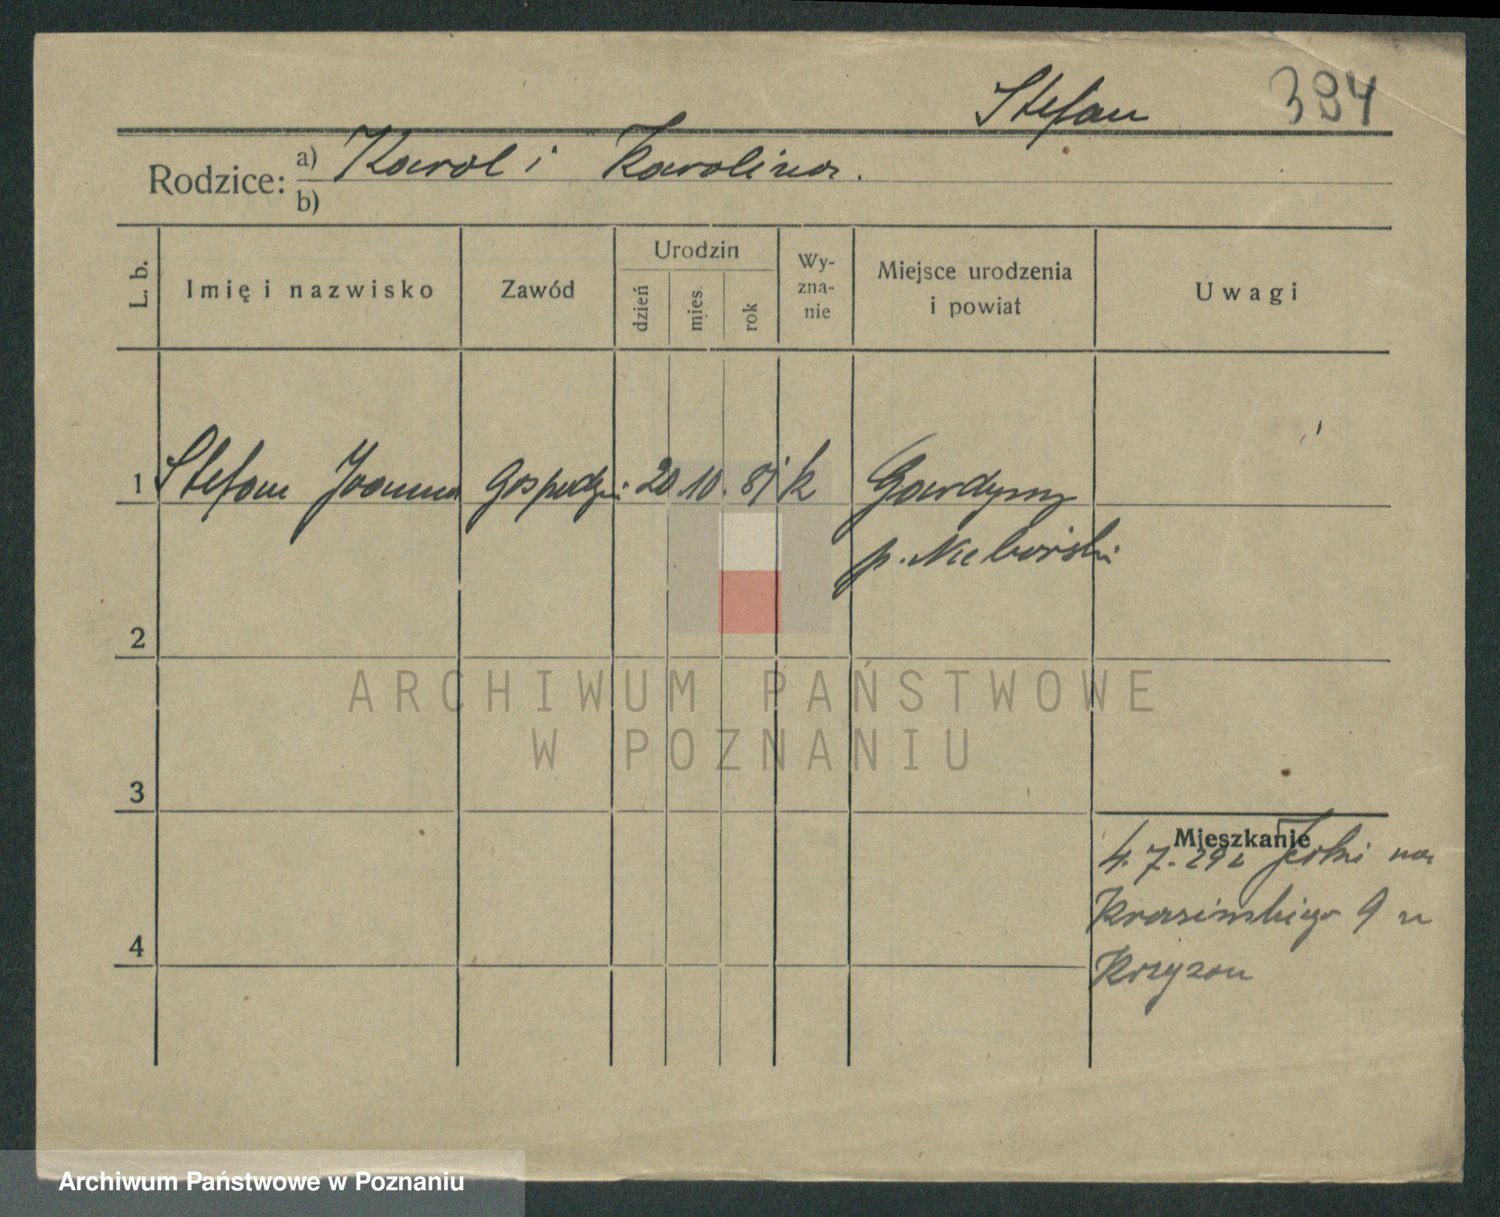 Stefan 394
Rodzice: a) Karol i Karolina.
b)
L. b. Imię i nazwisko Zawód Urodzin dzień mies. rok Wy-zna-nie Miejsce urodzenia i powiat Uwagi
1 Stefan Joanna Gospodyni 20 10. 81 k
p.
2
ARCHIWUM PAŃSTWOWE
W POZNANIU
3
Mieszkanie
4. 7. 29 z na
Krasińskiego 9 u
4
Archiwum Państwowe w Poznaniu